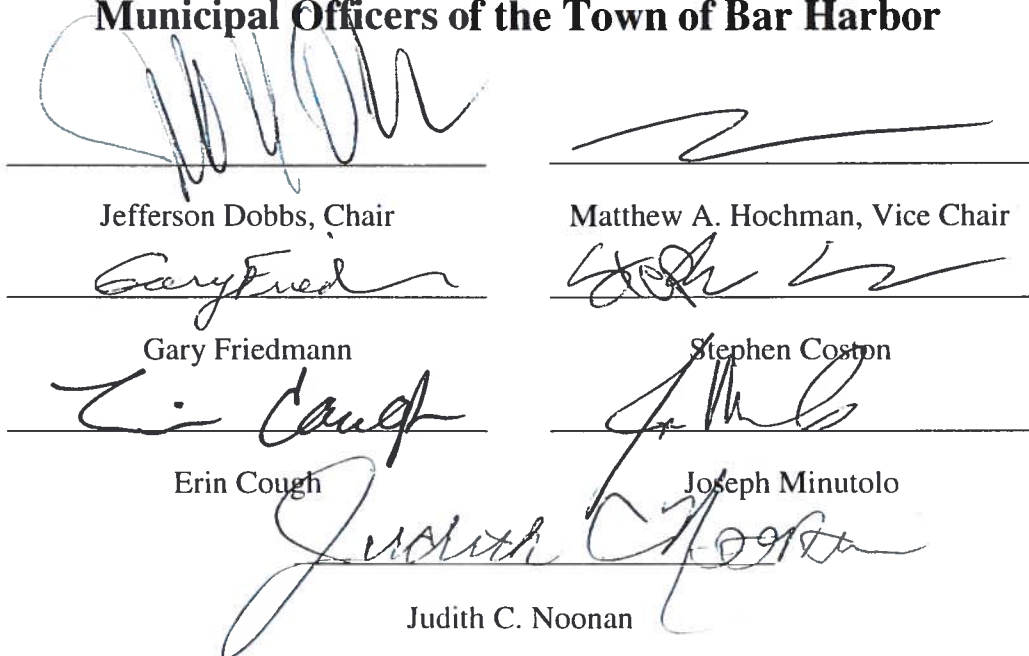 Municipal Officers of the Town of Bar Harbor
Jefferson Dobbs, Chair
Matthew A. Hochman, Vice Chair
Gary Fried
Gary Friedmann
Stephen Coston
Erin Cough
Erin Cough
Joseph Minutolo
Judith C Noonan
Judith C. Noonan